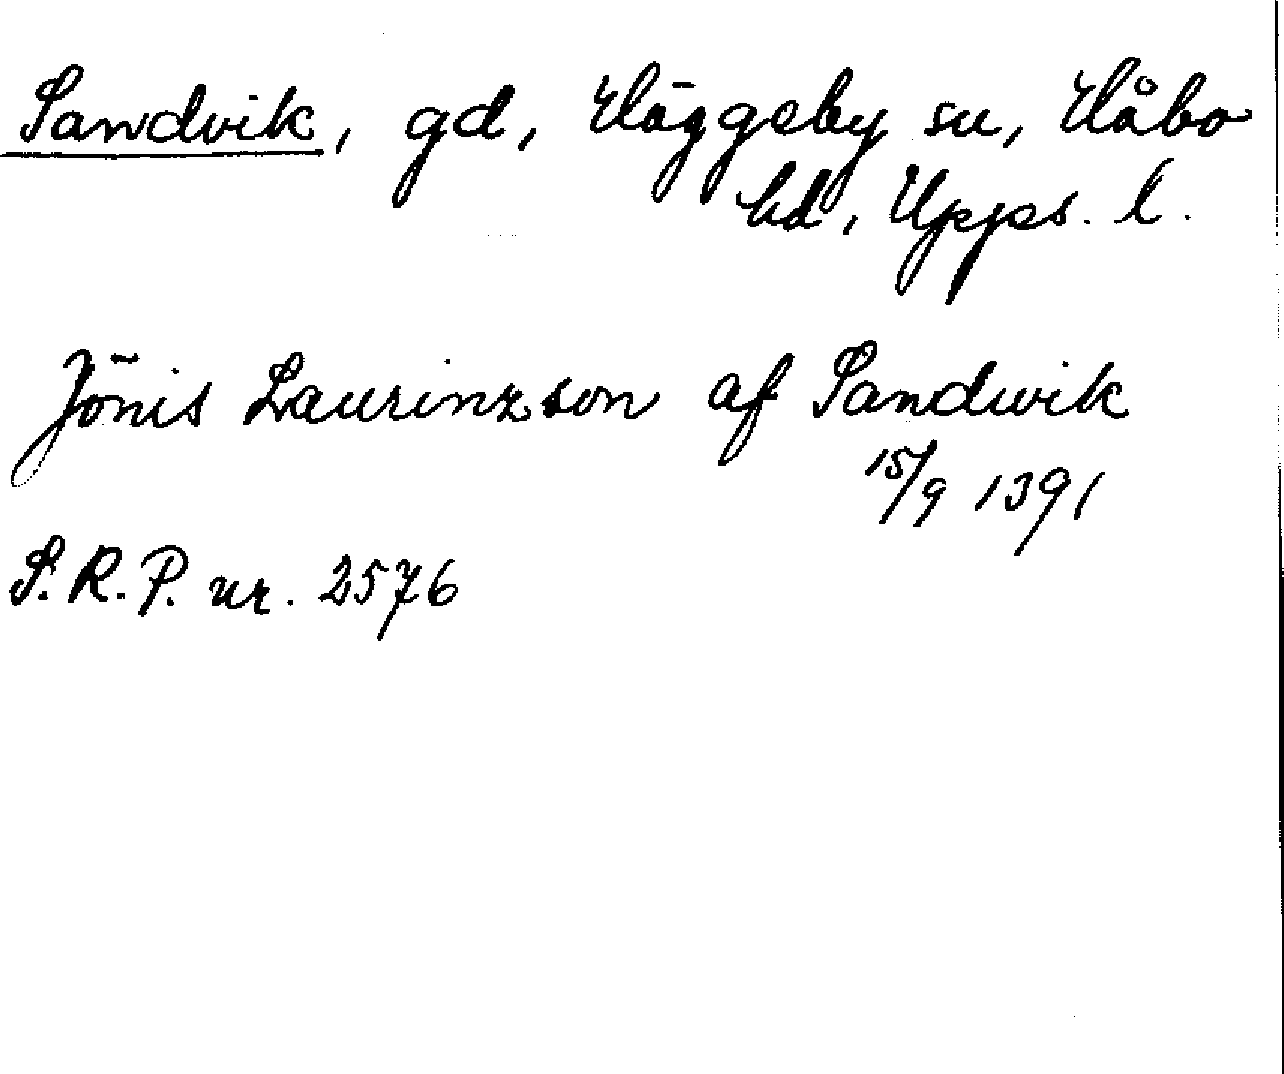 Sandvik, gd, Häggeby sn, Håbo
hd, Upps. l.
Jönis Laurinzson af Sandwik
15/9 1391
S.R.P. nr. 2576